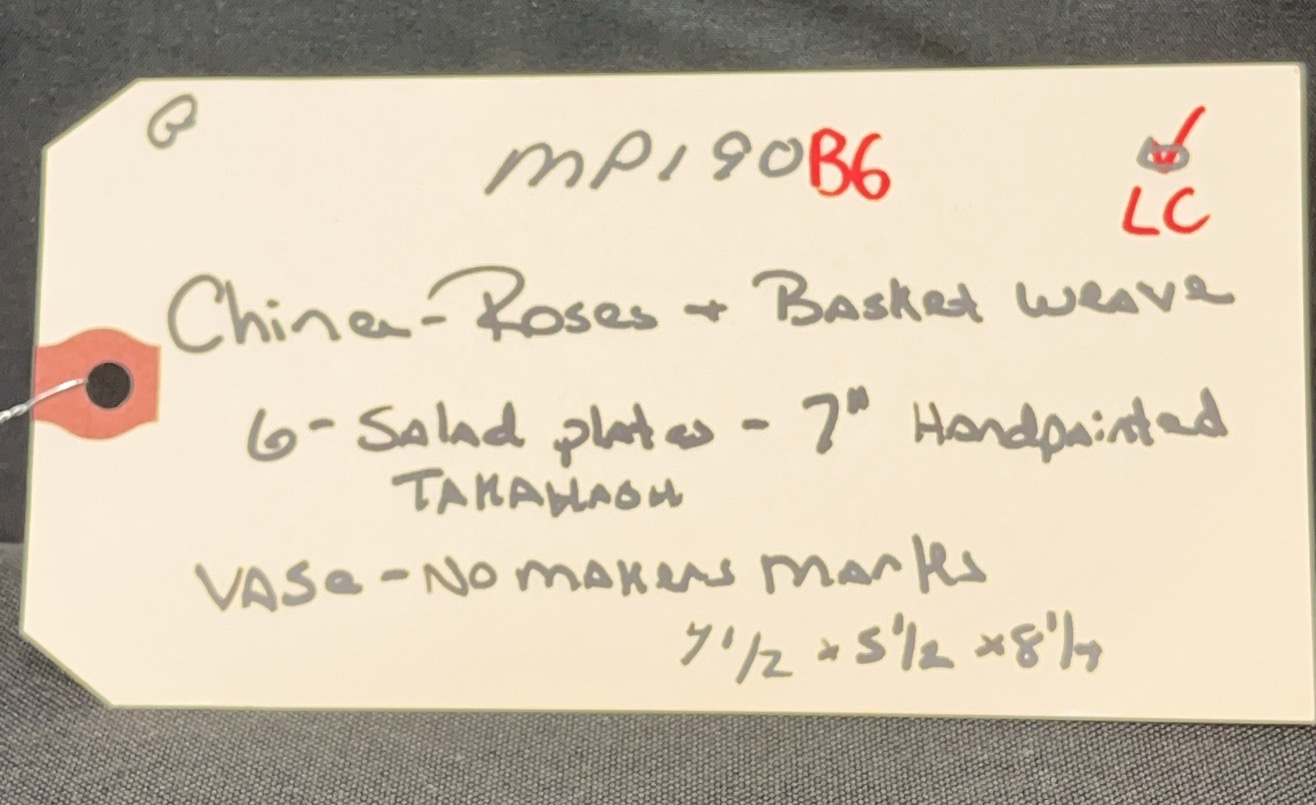 MP190B6
LC
China-Roses + Basket weave
6-Salad plates - 7" Handpainted
TAKAHASHI
VASe-No makers Marks
7 1/2 x 5 1/2 x 8 1/4